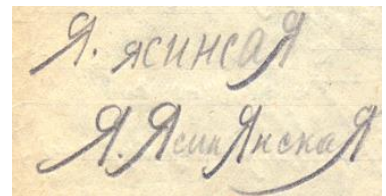 Я. ясинсаЯ
Я. ЯсинЯнскаЯ